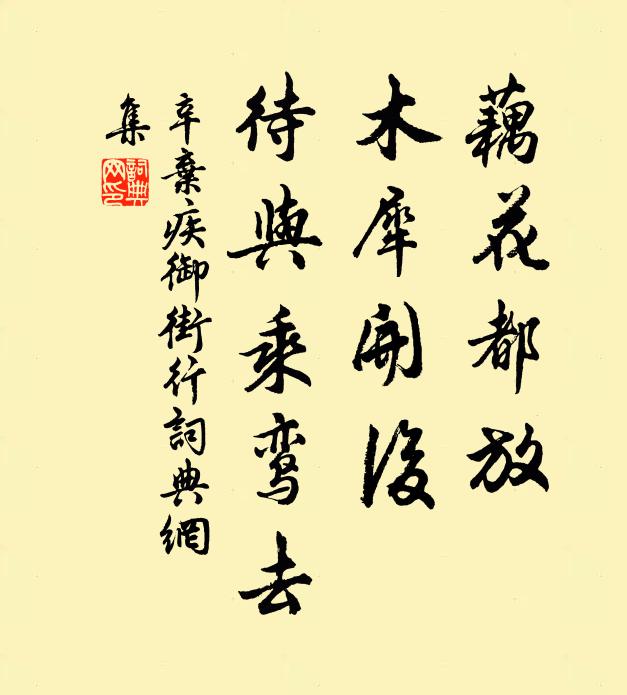 藕花都放
木犀開後
待與乘鸾去
辛棄疾御街行詞典網
集
詞典網印